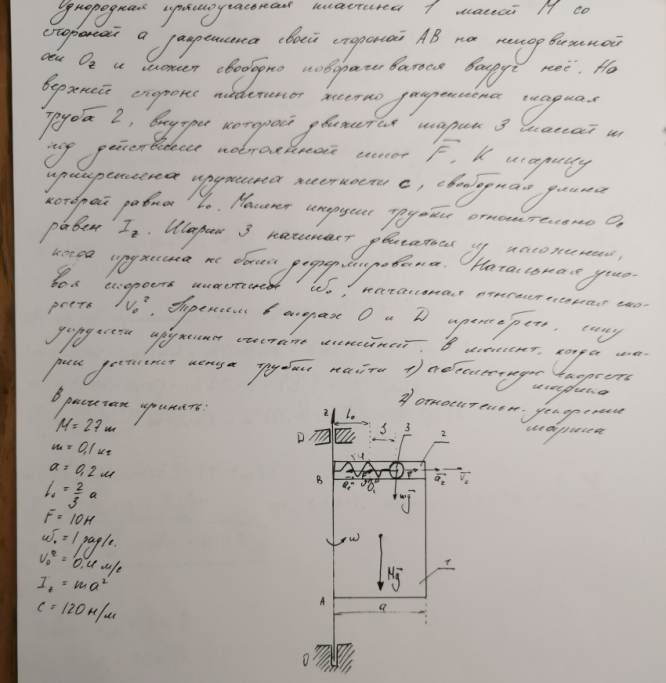 Однородная прямоугольная пластина 1 массой M со
стороной a закреплена своей стороной AB на неподвижной
оси Oz и может свободно поворачиваться вокруг неё. На
верхней стороне пластины жестко закреплена гладкая
труба 2, внутри которой движется шарик 3 массой m
под действием постоянной силы F. К шарику
прикреплена пружина жесткости c, свободная длина
которой равна l₀. Момент инерции трубки относительно Oz
равен Iz. Шарик 3 начинает двигаться из положения,
когда пружина не была деформирована. Начальная угло-
вая скорость пластины ω₀, начальная относительная ско-
рость V₀ʳ. Трением в опорах O и D пренебречь, силу
упругости пружины считать линейной. В момент, когда ша-
рик достигнет конца трубки найти 1) абсолютную скорость
шарика
2) относительн. ускорение
шарика
В расчетах принять:
M = 27m
m = 0,1 кг
a = 0,2 м
l₀ = 2/3 a
F = 10 Н
ω₀ = 1 рад/с.
V₀ʳ = 0,4 м/с
Iz = ma²
c = 120 Н/м
z
l₀
D
S
3
2
B
mg
ω
Mg
1
A
a
O